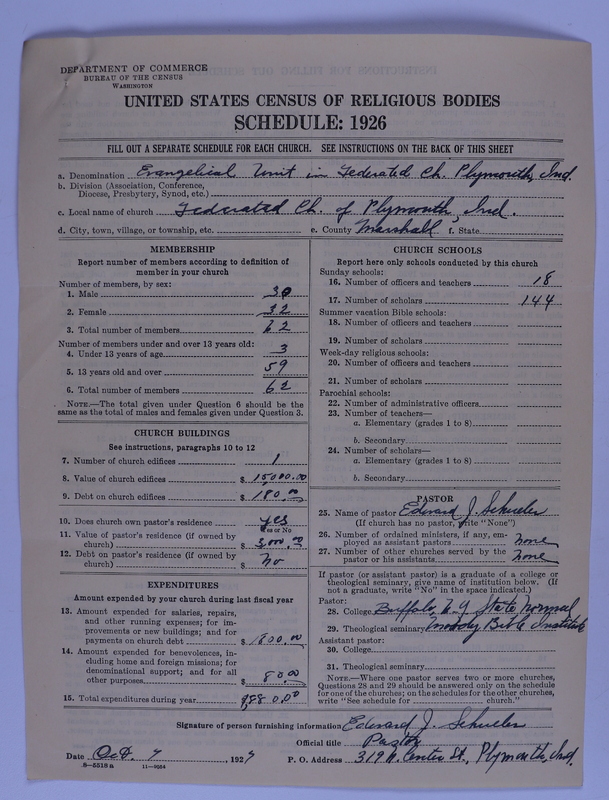 DEPARTMENT OF COMMERCE
BUREAU OF THE CENSUS
WASHINGTON
UNITED STATES CENSUS OF RELIGIOUS BODIES
SCHEDULE: 1926
FILL OUT A SEPARATE SCHEDULE FOR EACH CHURCH. SEE INSTRUCTIONS ON THE BACK OF THIS SHEET
a. Denomination Evangelical Unit in Federated Ch. Plymouth, Ind.
b. Division (Association, Conference,
Diocese, Presbytery, Synod, etc.)
c. Local name of church Federated Ch. of Plymouth, Ind.
d. City, town, village, or township, etc. e. County Marshall f. State
MEMBERSHIP
Report number of members according to definition of
member in your church
Number of members, by sex:
1. Male 30
2. Female 32
3. Total number of members 62
Number of members under and over 13 years old:
4. Under 13 years of age 3
5. 13 years old and over 59
6. Total number of members 62
NOTE.—The total given under Question 6 should be the
same as the total of males and females given under Question 3.
CHURCH BUILDINGS
See instructions, paragraphs 10 to 12
7. Number of church edifices 1
8. Value of church edifices $ 15,000.00
9. Debt on church edifices $ 180.00
10. Does church own pastor's residence yes
Yes or No
11. Value of pastor's residence (if owned by
church) $ 3,000.00
12. Debt on pastor's residence (if owned by
church) $ no
EXPENDITURES
Amount expended by your church during last fiscal year
13. Amount expended for salaries, repairs,
and other running expenses; for im-
provements or new buildings; and for
payments on church debt $ 1800.00
14. Amount expended for benevolences, in-
cluding home and foreign missions; for
denominational support; and for all
other purposes $ 80.00
15. Total expenditures during year $
CHURCH SCHOOLS
Report here only schools conducted by this church
Sunday schools:
16. Number of officers and teachers 18
17. Number of scholars 144
Summer vacation Bible schools:
18. Number of officers and teachers
19. Number of scholars
Week-day religious schools:
20. Number of officers and teachers
21. Number of scholars
Parochial schools:
22. Number of administrative officers
23. Number of teachers—
a. Elementary (grades 1 to 8)
b. Secondary
24. Number of scholars—
a. Elementary (grades 1 to 8)
b. Secondary
PASTOR
25. Name of pastor Edward J. Schueler
(If church has no pastor, write "None")
26. Number of ordained ministers, if any, em-
ployed as assistant pastors none
27. Number of other churches served by the
pastor or his assistants none
If pastor (or assistant pastor) is a graduate of a college or
theological seminary, give name of institution below. (If
not a graduate, write "No" in the space indicated.)
Pastor:
28. College Buffalo, N.Y. State Normal
29. Theological seminary Moody Bible Institute
Assistant pastor:
30. College
31. Theological seminary
NOTE.—Where one pastor serves two or more churches,
Questions 28 and 29 should be answered only on the schedule
for one of the churches; on the schedules for the other churches,
write "See schedule for church."
Signature of person furnishing information Edward J. Schueler
Official title Pastor
Date Oct. 7, 1927 P. O. Address 319 N. Center St., Plymouth, Ind.
8—5518a 11—9054